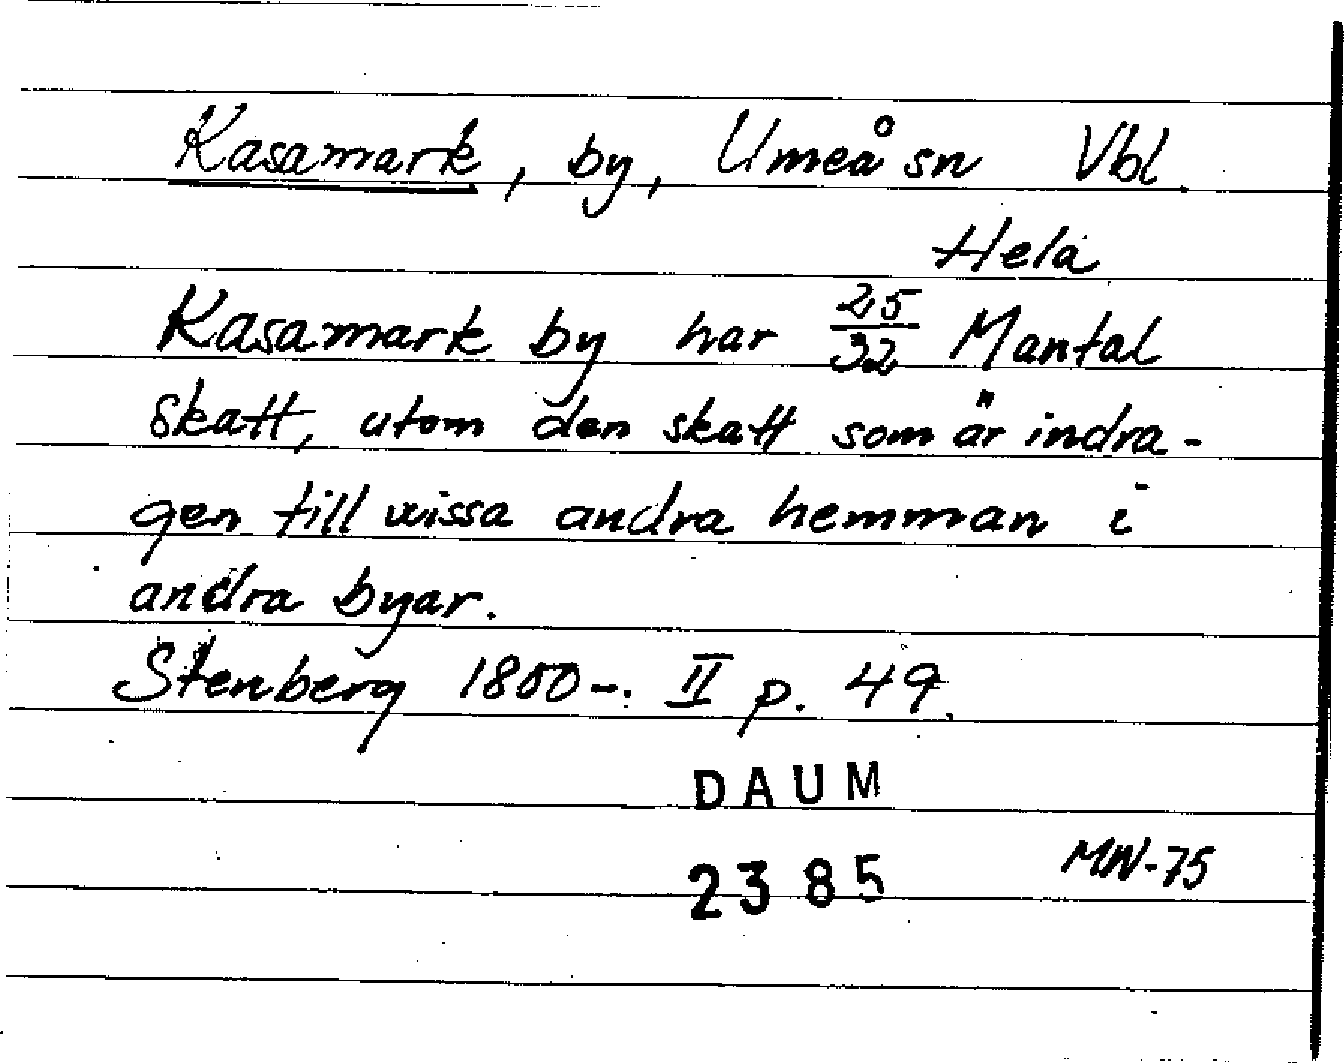 Kasamark, by, Umeå sn Vbl.
Hela
Kasamark by har 25/32 Mantal
skatt, utom den skatt som är indra-
gen till wissa andra hemman i
andra byar.
Stenberg 1800-. II p. 49.
DAUM
2385
MW-75